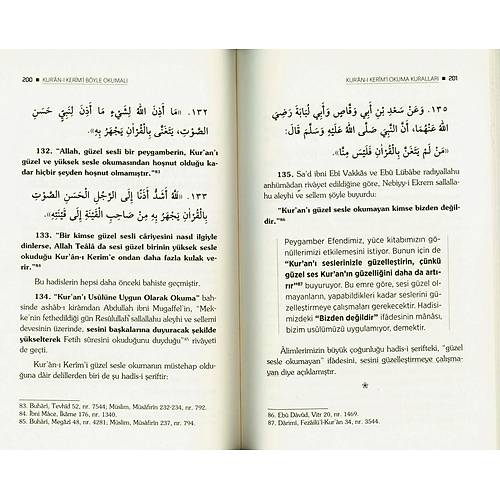 200 ■ KUR'ÂN-I KERÎM'İ BÖYLE OKUMALI
١٣٢. «مَا أَذِنَ اللهُ لِشَيْءٍ مَا أَذِنَ لِنَبِيٍّ حَسَنِ
الصَّوْتِ، يَتَغَنَّى بِالْقُرْآنِ يَجْهَرُ بِهِ».
132. "Allah, güzel sesli bir peygamberin, Kur'an'ı
güzel ve yüksek sesle okumasından hoşnut olduğu ka-
dar hiçbir şeyden hoşnut olmamıştır."83
١٣٣. «لَلّٰهُ أَشَدُّ أَذَنًا إِلَى الرَّجُلِ الْحَسَنِ الصَّوْتِ
بِالْقُرْآنِ يَجْهَرُ بِهِ مِنْ صَاحِبِ الْقَيْنَةِ إِلَى قَيْنَتِهِ».
133. "Bir kimse güzel sesli câriyesini nasıl ilgiyle
dinlerse, Allah Teâlâ da sesi güzel birinin yüksek sesle
okuduğu Kur'ân-ı Kerîm'e ondan daha fazla kulak ve-
rir."84
Bu hadislerin hepsi daha önceki bahiste geçmiştir.
134. "Kur'an'ı Usûlüne Uygun Olarak Okuma" bah-
sinde ashâb-ı kirâmdan Abdullah ibni Mugaffel'in, "Mek-
ke'nin fethedildiği gün Resûlullah sallallahu aleyhi ve sellemi
devesinin üzerinde, sesini başkalarına duyuracak şekilde
yükselterek Fetih sûresini okuduğunu duyduğu"85 rivâyeti
de geçti.
Kur'ân-ı Kerîm'i güzel sesle okumanın müstehap olduğu-
na dâir delillerden biri de şu hadîs-i şeriftir:
83. Buhârî, Tevhîd 52, nr. 7544; Müslim, Müsâfirîn 232-234, nr. 792.
84. İbni Mâce, İkāme 176, nr. 1340.
85. Buhârî, Megāzî 48, nr. 4281; Müslim, Müsâfirîn 237, nr. 794.
KUR'ÂN-I KERÎM'İ OKUMA KURALLARI ■ 201
١٣٥. وَعَنْ سَعْدِ بْنِ أَبِي وَقَّاصٍ وَأَبِي لُبَابَةَ رَضِيَ
اللهُ عَنْهُمَا، أَنَّ النَّبِيَّ صَلَّى اللهُ عَلَيْهِ وَسَلَّمَ قَالَ:
«مَنْ لَمْ يَتَغَنَّ بِالْقُرْآنِ فَلَيْسَ مِنَّا».
135. Sa'd ibni Ebî Vakkās ve Ebû Lübâbe radıyallahu
anhümâdan rivâyet edildiğine göre, Nebiyy-i Ekrem sallalla-
hu aleyhi ve sellem şöyle buyurdu:
"Kur'an'ı güzel sesle okumayan kimse bizden değil-
dir."86
Peygamber Efendimiz, yüce kitabımızın gö-
nüllerimizi etkilemesini istiyor. Bunun için de
"Kur'an'ı seslerinizle güzelleştirin, çünkü
güzel ses Kur'an'ın güzelliğini daha da artı-
rır"87 buyuruyor. Bu emre göre, sesi güzel ol-
mayanların, yapabildikleri kadar seslerini gü-
zelleştirmeye çalışmaları gerekiyor. Hadisi-
mizdeki "Bizden değildir" ifâdesinin mânâsı,
bizim usûlümüzü uygulamıyor, demektir.
Âlimlerimizin büyük çoğunluğu hadîs-i şerifteki, "güzel
sesle okumayan" ifâdesini, sesini güzelleştirmeye çalışma-
yan diye açıklamıştır.
86. Ebû Dâvûd, Vitr 20, nr. 1469.
87. Dârimî, Fezâilü'l-Kur'ân 34, nr. 3544.